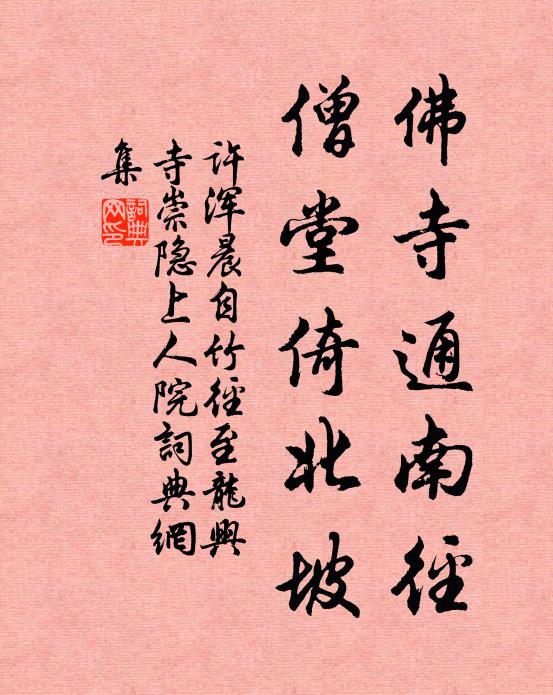 佛寺通南徑
僧堂倚北坡
许渾晨自竹徑至龍興
寺崇隐上人院詞典網
集
詞典
网印